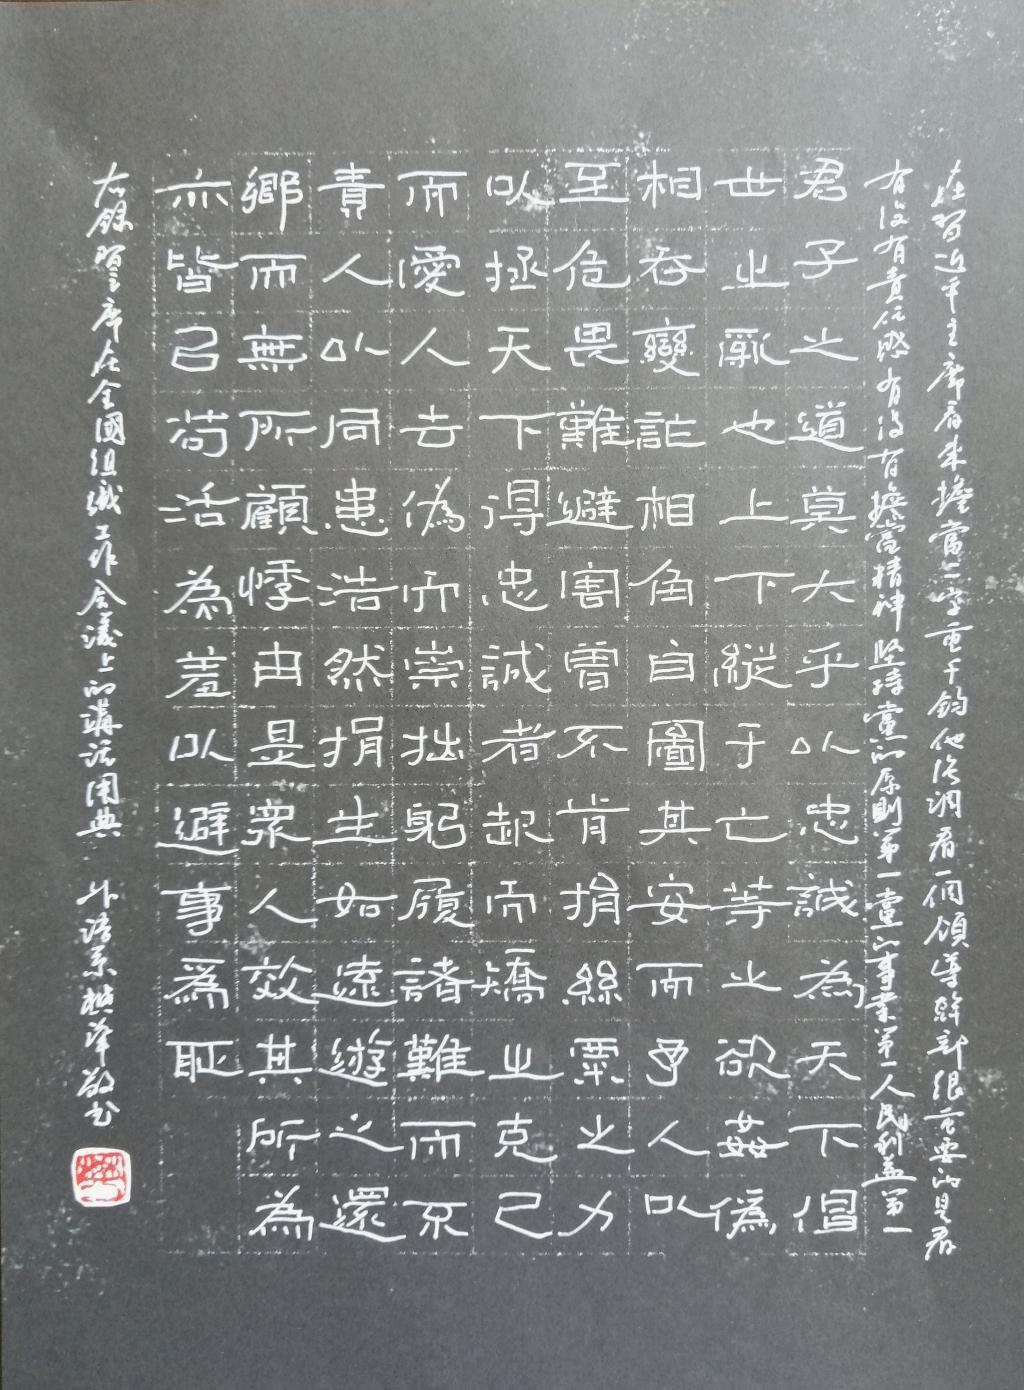 在習近平主席看來擔當二字重千鈞他強調看一個領導幹部很重要的是看
有沒有責任感有沒有擔當精神堅持黨的原則第一黨的事業第一人民利益第一
君子之道莫大乎以忠誠為天下倡
世之亂也上下縱于亡等之欲姦偽
相吞變詐相角自圖其安而予人以
至危畏難避害曾不肯捐絲粟之力
以拯天下得忠誠者起而矯之克己
而愛人去偽而崇拙躬履諸難而不
責人以同患浩然捐生如遠遊之還
鄉而無所顧悸由是眾人效其所為
亦皆㠯苟活為羞以避事爲恥
右錄習主席在全國組織工作會議上的講話用典